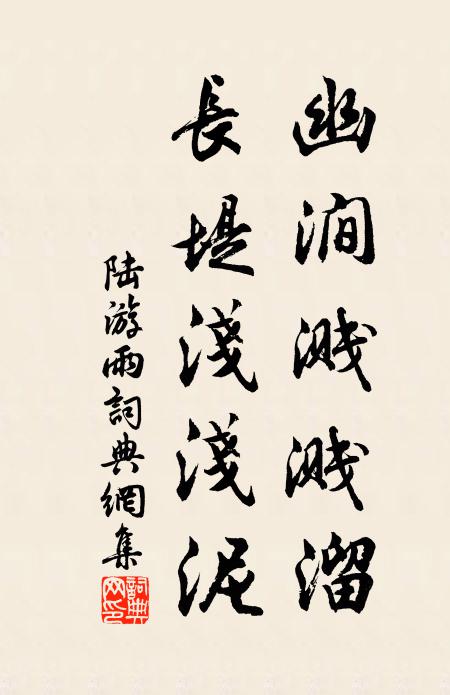 幽澗濺濺溜
長堤淺淺泥
陆游雨詞典網集
詞典網印